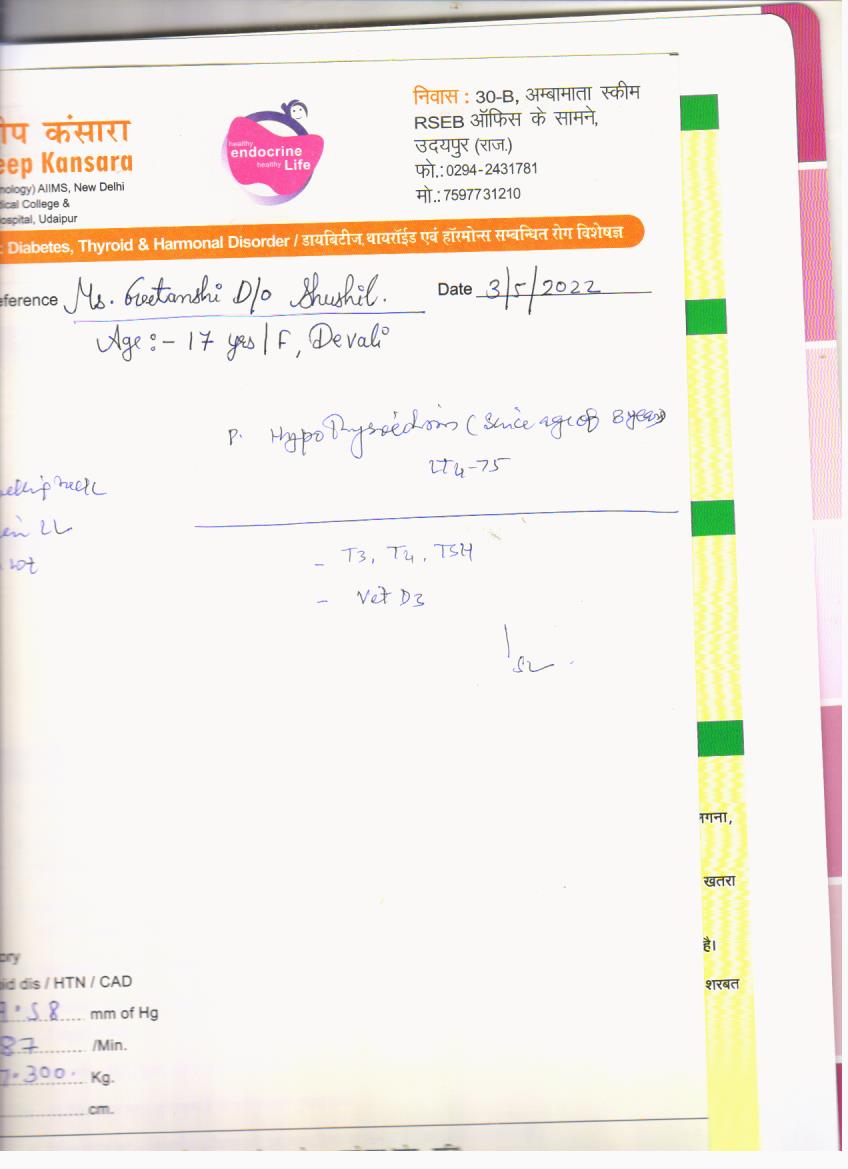 ीप कंसारा
eep Kansara
nology) AIIMS, New Delhi
ical College &
ospital, Udaipur
healthy
endocrine
healthy Life
निवास : 30-B, अम्बामाता स्कीम
RSEB ऑफिस के सामने,
उदयपुर (राज.)
फो.: 0294-2431781
मो.: 7597731210
: Diabetes, Thyroid & Harmonal Disorder / डायबिटीज, थायरॉईड एवं हॉरमोन्स सम्बन्धित रोग विशेषज्ञ
eference Ms. Geetanshi D/o Shushil. Date 3/5/2022
Age :- 17 yrs / F, Devali
P. Hypothyroidism (Since age of 8 years
LT4-75
neck
- T3, T4, TSH
- Vit D3
लगना,
खतरा
है।
शरबत
ory
oid dis / HTN / CAD
58 mm of Hg
87 /Min.
7.300 Kg.
cm.